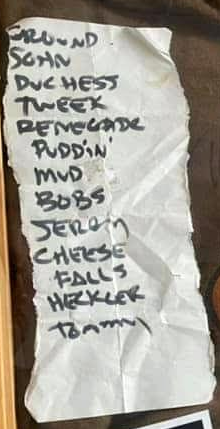 GROUND
SOHN
DUCHESS
TWEEK
RENEGADE
PUDDIN'
MUD
BOBS
JEROMY
CHEESE
FALLS
HECKLER
TOMMY